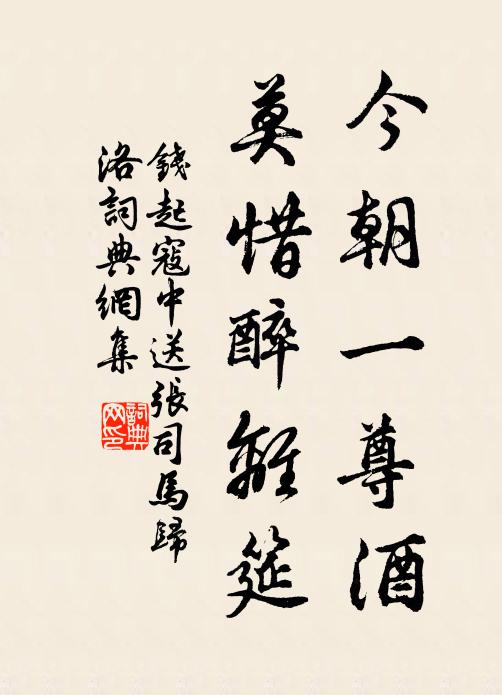 今朝一尊酒
莫惜醉離筵
錢起寇中送張司馬歸
洛詞典網集
詞典网印